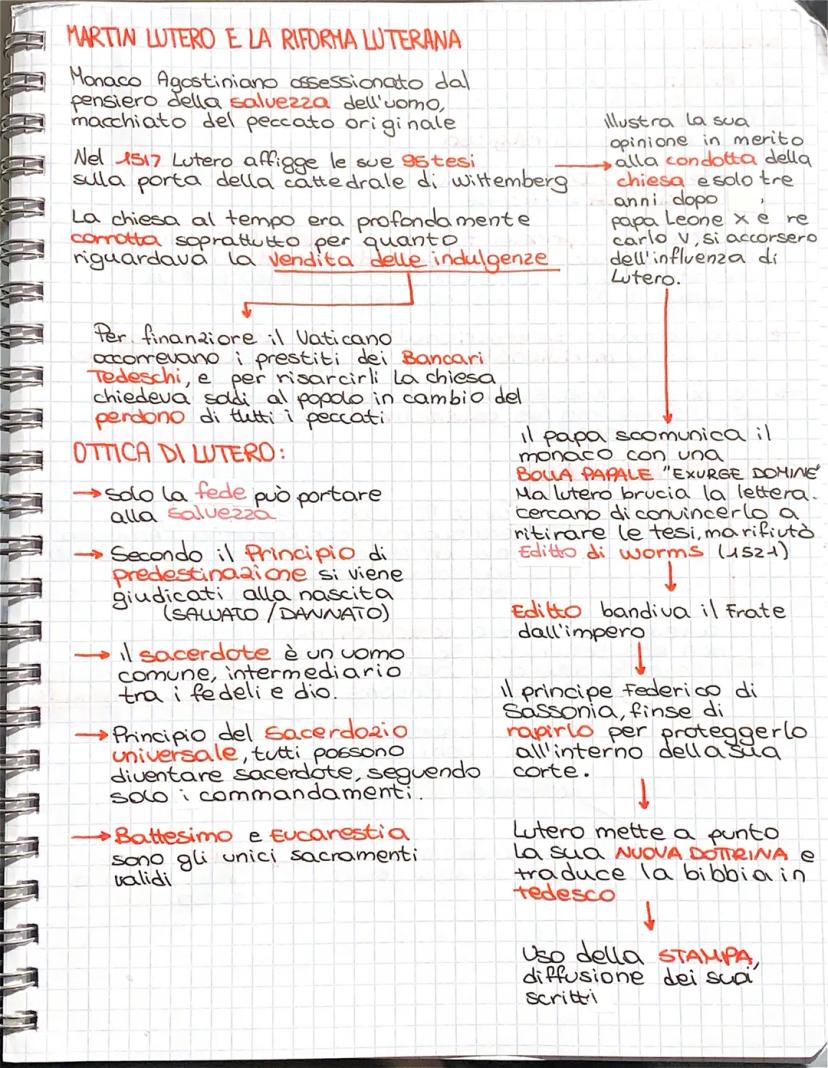 MARTIN LUTERO E LA RIFORMA LUTERANA
Monaco Agostiniano ossessionato dal
pensiero della salvezza dell'uomo,
macchiato del peccato originale
Nel 1517 Lutero affigge le sue 95 tesi
sulla porta della cattedrale di Wittemberg
La chiesa al tempo era profondamente
corrotta soprattutto per quanto
riguardava la vendita delle indulgenze
Per finanziare il Vaticano
occorrevano i prestiti dei Bancari
Tedeschi, e per risarcirli la chiesa
chiedeva soldi al popolo in cambio del
perdono di tutti i peccati
OTTICA DI LUTERO:
→ solo la fede può portare
alla salvezza
→ Secondo il Principio di
predestinazione si viene
giudicati alla nascita
(SALVATO / DANNATO)
→ il sacerdote è un uomo
comune, intermediario
tra i fedeli e dio.
→ Principio del Sacerdozio
universale, tutti possono
diventare sacerdote, seguendo
solo i commandamenti.
→ Battesimo e Eucarestia
sono gli unici sacramenti
validi
illustra la sua
opinione in merito
alla condotta della
chiesa e solo tre
anni dopo,
papa Leone X e re
carlo V, si accorsero
dell'influenza di
Lutero.
il papa scomunica il
monaco con una
BOLLA PAPALE "EXURGE DOMINE"
Ma lutero brucia la lettera.
cercano di convincerlo a
ritirare le tesi, ma rifiutò
Editto di worms (1521)
Editto bandiva il Frate
dall'impero
Il principe Federico di
Sassonia, finse di
rapirlo per proteggerlo
all'interno della sua
corte.
Lutero mette a punto
la sua NUOVA DOTTRINA e
traduce la bibbia in
tedesco
Uso della STAMPA,
diffusione dei suoi
scritti